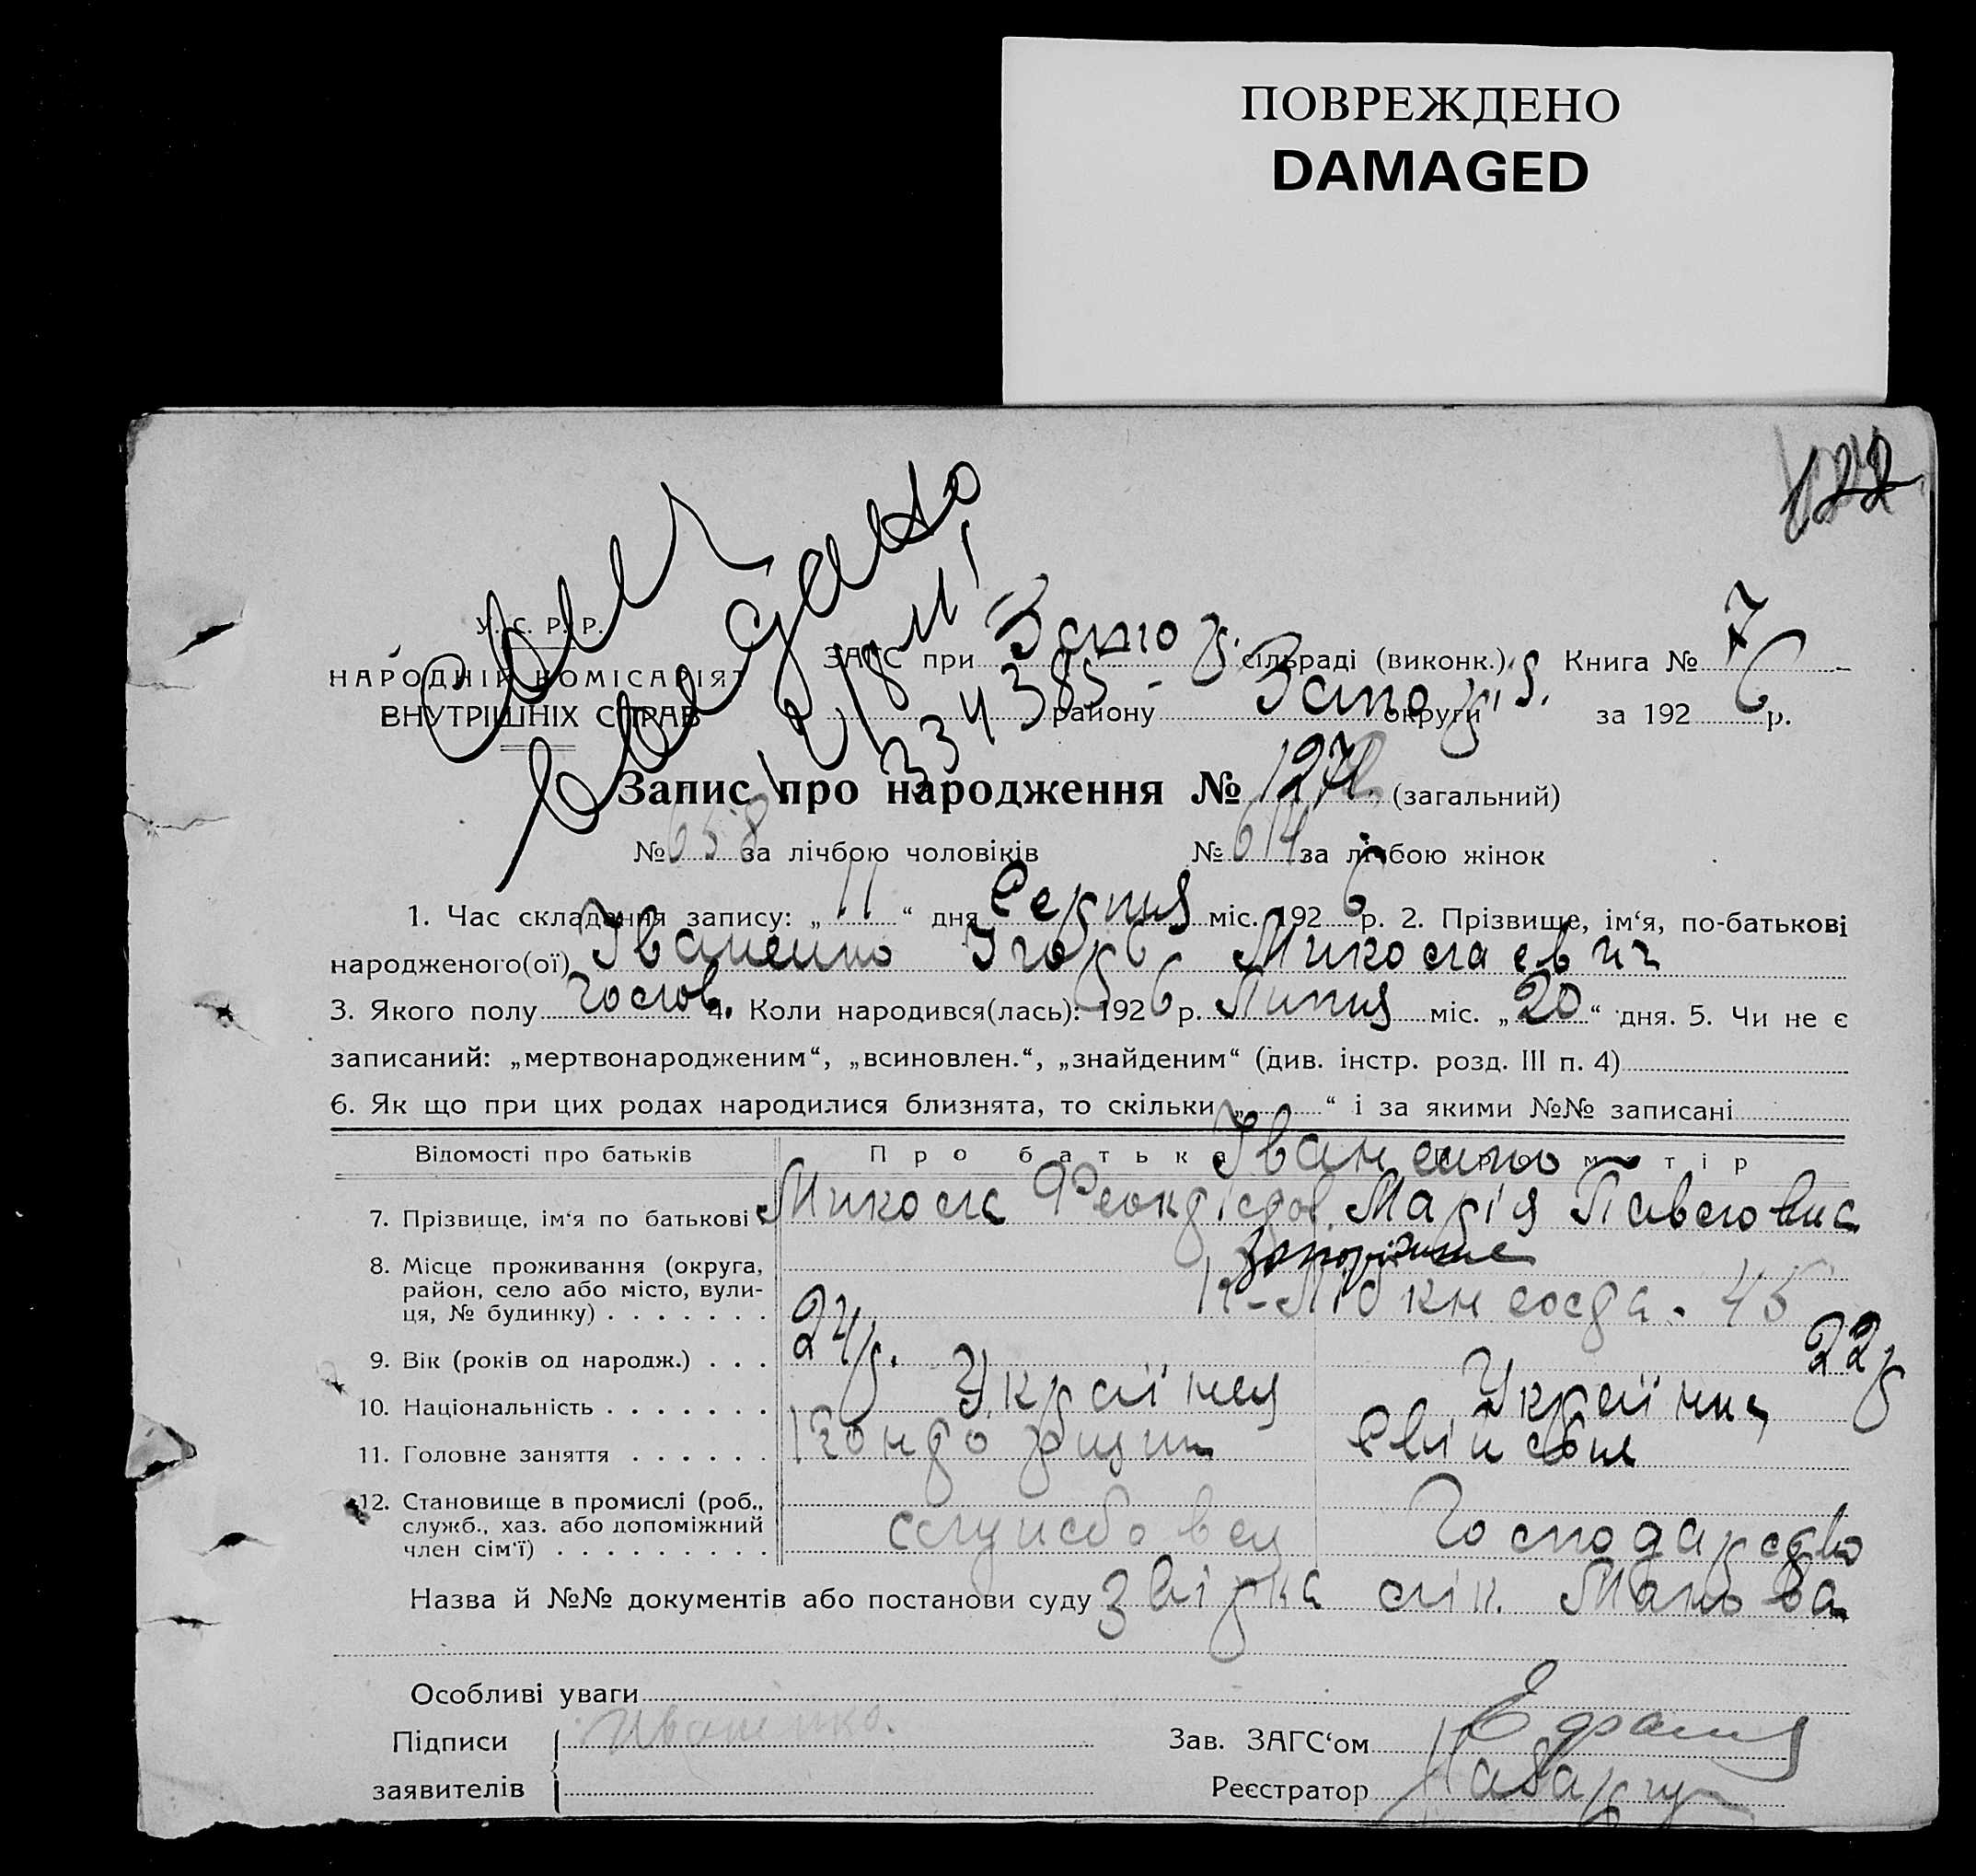 ПОВРЕЖДЕНО
DAMAGED
122
У. С. Р. Р.
НАРОДНІЙ КОМІСАРІЯТ
ВНУТРІШНІХ СПРАВ
ЗАГС при Запоріз. сільраді (виконк.) Книга № 7
району Запоріз. округи за 192 6 р.
334385
Запис про народження № 1271 (загальний)
№ 658 за лічбою чоловіків № 614 за лічбою жінок
1. Час складання запису: „ 11 “ дня Серпня міс. 192 6 р. 2. Прізвище, ім‘я, по-батькові
народженого(ої) Іваненко Ігорь Миколаевич
3. Якого полу Чолов. 4. Коли народився(лась): 192 6 р. Липня міс. „ 20 “ дня. 5. Чи не є
записаний: „мертвонародженим“, „всиновлен.“, „знайденим“ (див. інстр. розд. III п. 4)
6. Як що при цих родах народилися близнята, то скільки „ “ і за якими №№ записані
Відомості про батьків Про батька Іваненко матір
7. Прізвище, ім‘я по батькові Микола Марія Павловна
8. Місце проживання (округа,
район, село або місто, вули-
ця, № будинку) Запоріжже
К-Лібкнехда. 45
9. Вік (років од народж.) 24/р. 22/р
10. Національність Українец Українка
11. Головне заняття Кондорщик Свійсбне
12. Становище в промислі (роб.,
служб., хаз. або допоміжний
член сім‘ї) службовец Господарсдво
Назва й №№ документів або постанови суду Звірка лік. Манова
Особливі уваги
Підписи Иваненко.
заявителів
Зав. ЗАГС‘ом
Реєстратор